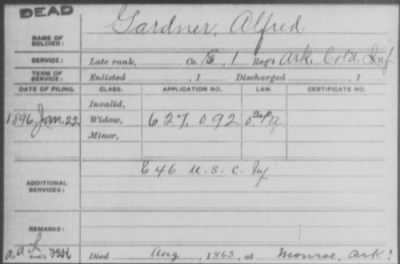 DEAD
NAME OF SOLDIER: Gardner, Alfred
SERVICE: Late rank, Co. B, 1 Reg't Ark. Cold. Inf
TERM OF SERVICE: Enlisted , 1 Discharged , 1
DATE OF FILING. CLASS. APPLICATION NO. LAW. CERTIFICATE NO.
Invalid,
1896 Jan. 22 Widow, 627,092
Minor,
ADDITIONAL SERVICES: E 46 U.S.C. Inf
REMARKS:
Died Aug , 1863, at Monroe, Ark?